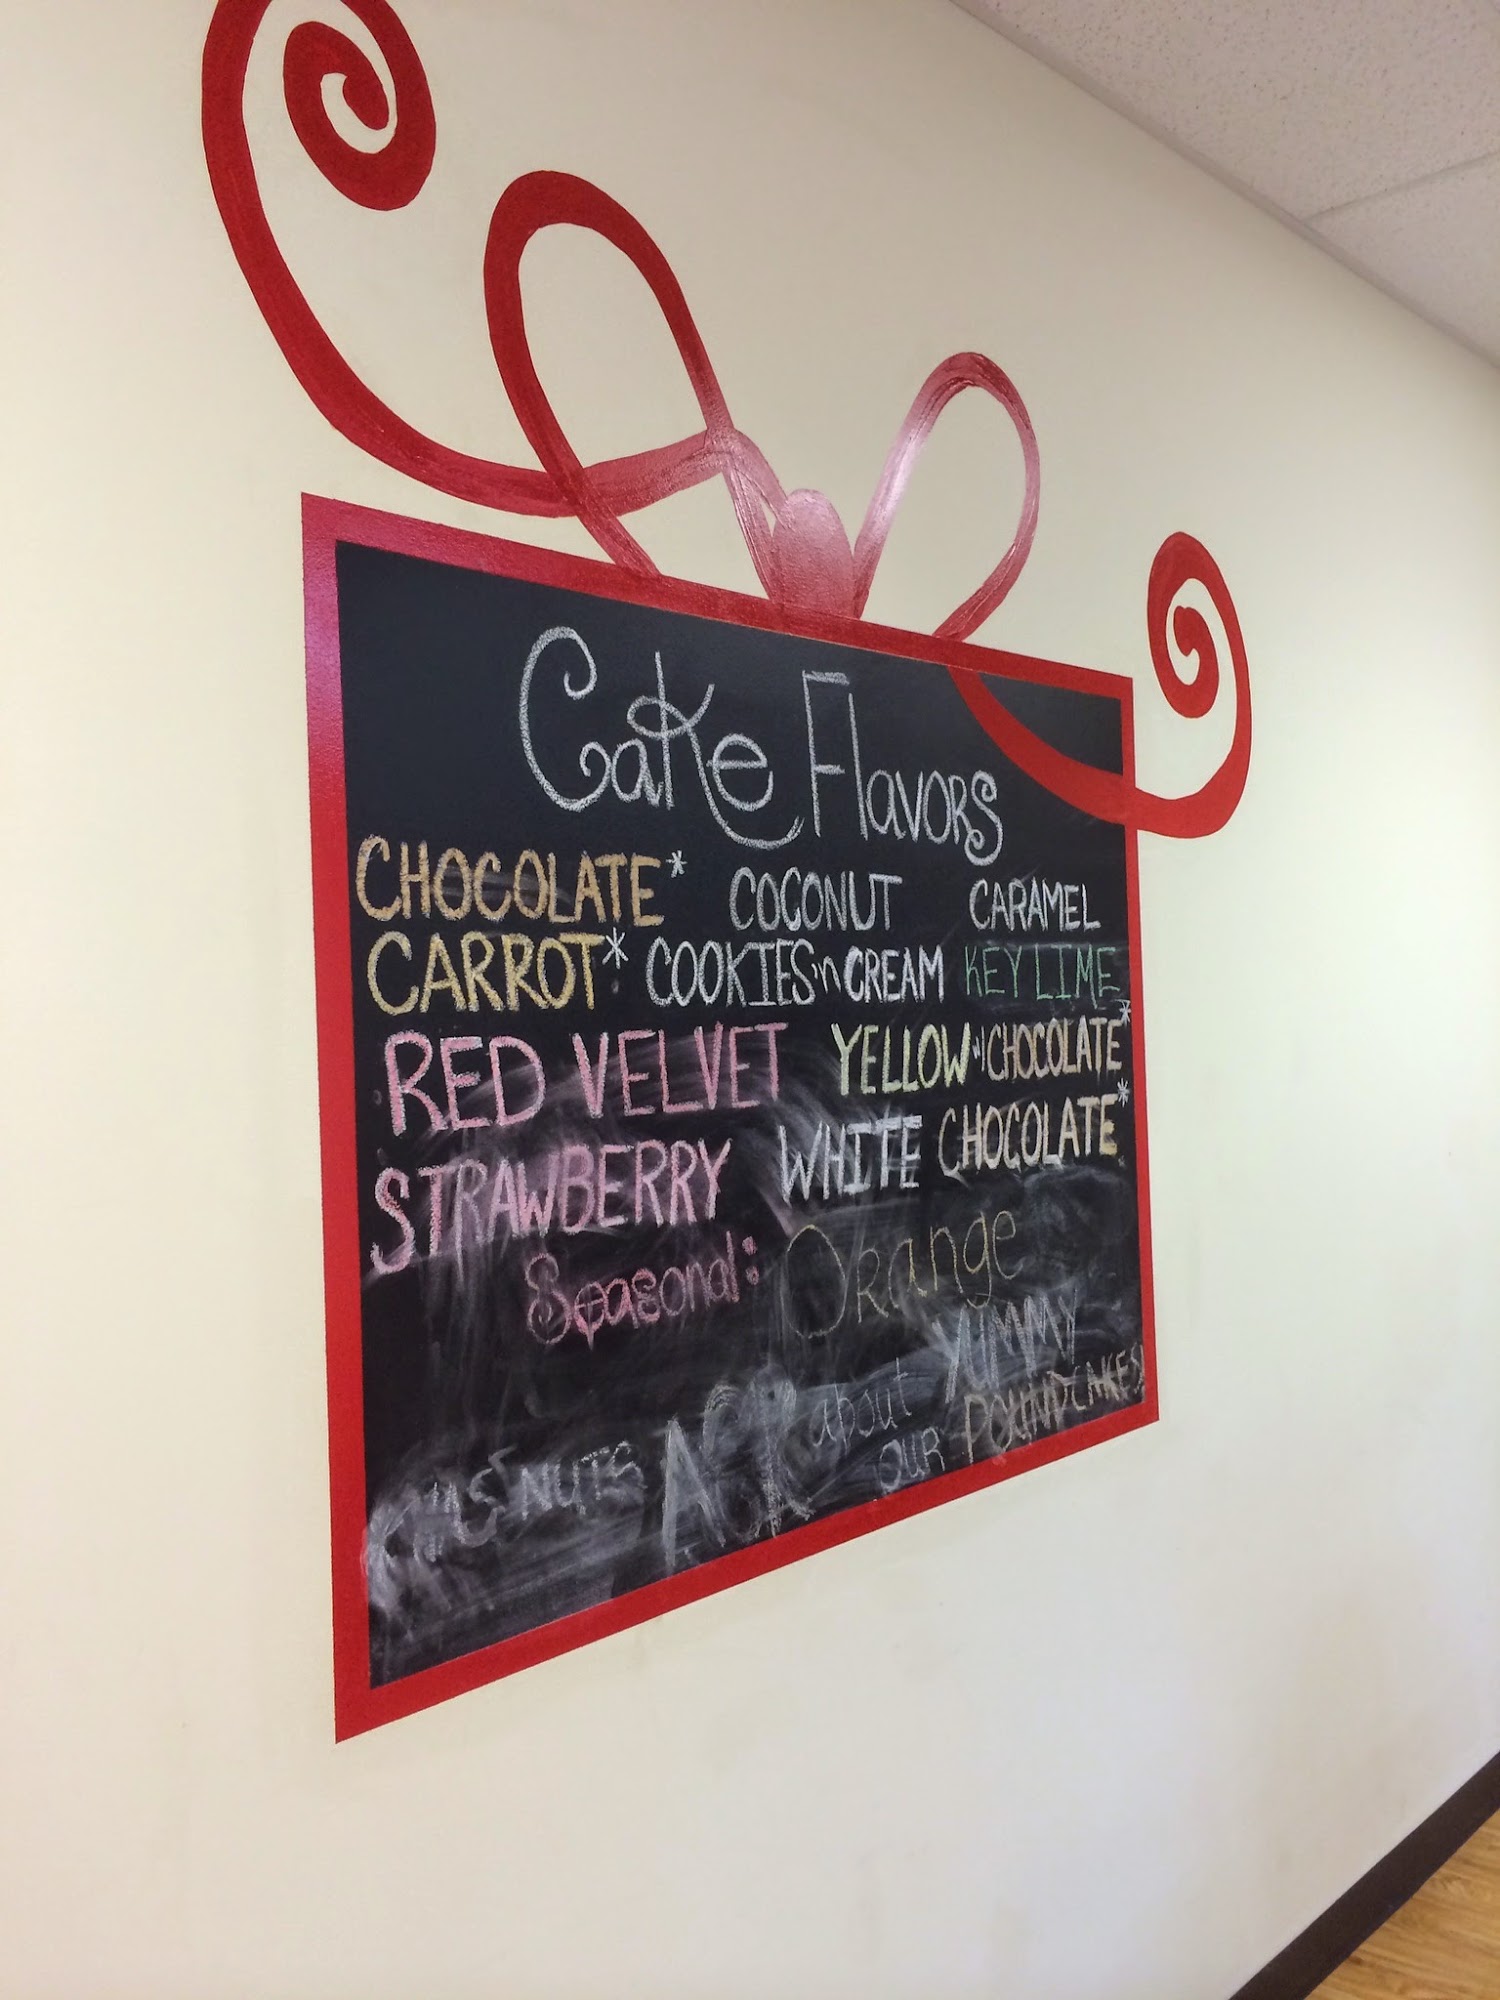 Cake Flavors
CHOCOLATE* COCONUT CARAMEL
CARROT* COOKIES 'n CREAM KEY LIME
RED VELVET YELLOW w/ CHOCOLATE*
STRAWBERRY WHITE CHOCOLATE*
Seasonal: Orange
NUTS ASK about our YUMMY
POUNDCAKES!